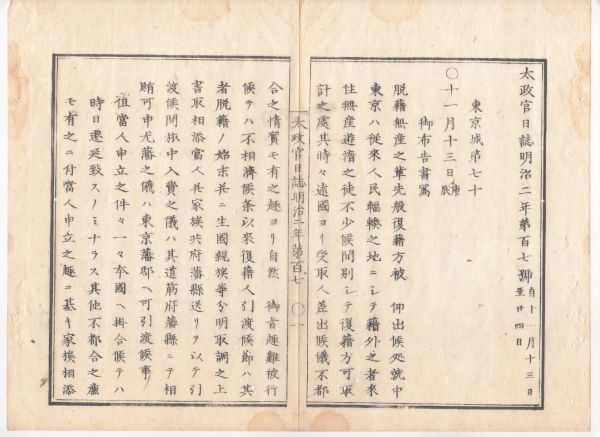 太政官日誌明治二年第百七號 自十一月十三日 至廿四日
東京城第七十
○十一月十三日庚辰
御布告書寫
脱籍無産之輩先般復籍方被 仰出候処就中
東京ハ従来人民輻輳之地ニシテ籍外之者来
住無産遊惰之徒不少候間別シテ復籍方可取
計之處其時々遠國ヨリ受取人差出候儀不都
太政官日誌明治二年第百七 ○一
合之情實モ有之趣ヨリ自然 御旨趣難被行
候テハ不相濟候条以來復籍人引渡候節ハ其
者脱籍ノ始末并ニ生國親族等分明取調之上
書取相添當人并家族共府藩縣送リヲ以テ引
渡候間旅中入費之儀ハ其道筋府藩縣ニテ相
賄可申尤藩之儀ハ東京藩邸ヘ可引渡候事
但當人申立之件々一々本國ヘ掛合候テハ
時日遷延致スノミナラス其他不都合之廉
モ有之ニ付當人申立之趣ニ基キ家族相添